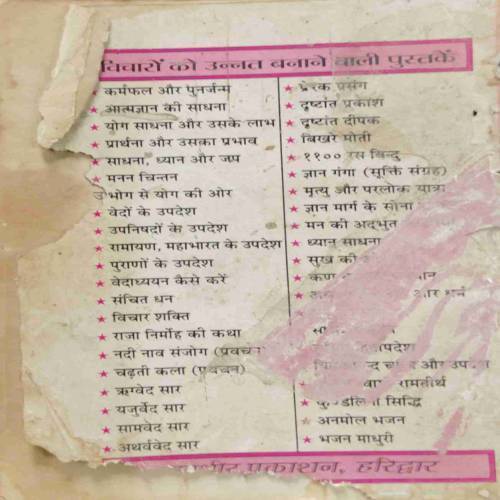 विचारों को उन्नत बनाने वाली पुस्तकें
★ कर्मफल और पुनर्जन्म
★ आत्मज्ञान की साधना
★ योग साधना और उसके लाभ
★ प्रार्थना और उसका प्रभाव
★ साधना, ध्यान और जप
★ मनन चिन्तन
भोग से योग की ओर
★ वेदों के उपदेश
★ उपनिषदों के उपदेश
★ रामायण, महाभारत के उपदेश
★ पुराणों के उपदेश
★ वेदाध्ययन कैसे करें
★ संचित धन
★ विचार शक्ति
★ राजा निर्मोह की कथा
★ नदी नाव संजोग (प्रवचन)
★ चढ़ती कला (प्रवचन)
★ ऋग्वेद सार
★ यजुर्वेद सार
★ सामवेद सार
★ अथर्ववेद सार
★ प्रेरक प्रसंग
★ दृष्टांत प्रकाश
★ दृष्टांत दीपक
★ बिखरे मोती
★ ११०० रस बिन्दु
★ ज्ञान गंगा (सूक्ति संग्रह)
★ मृत्यु और परलोक यात्रा
★ ज्ञान मार्ग के
★ मन की अद्भुत
★ ध्यान साधना
★ सुख की
★
★ और धर्म
और उपदेश
रामतीर्थ
★ सिद्धि
★ अनमोल भजन
★ भजन माधुरी
प्रकाशन, हरिद्वार